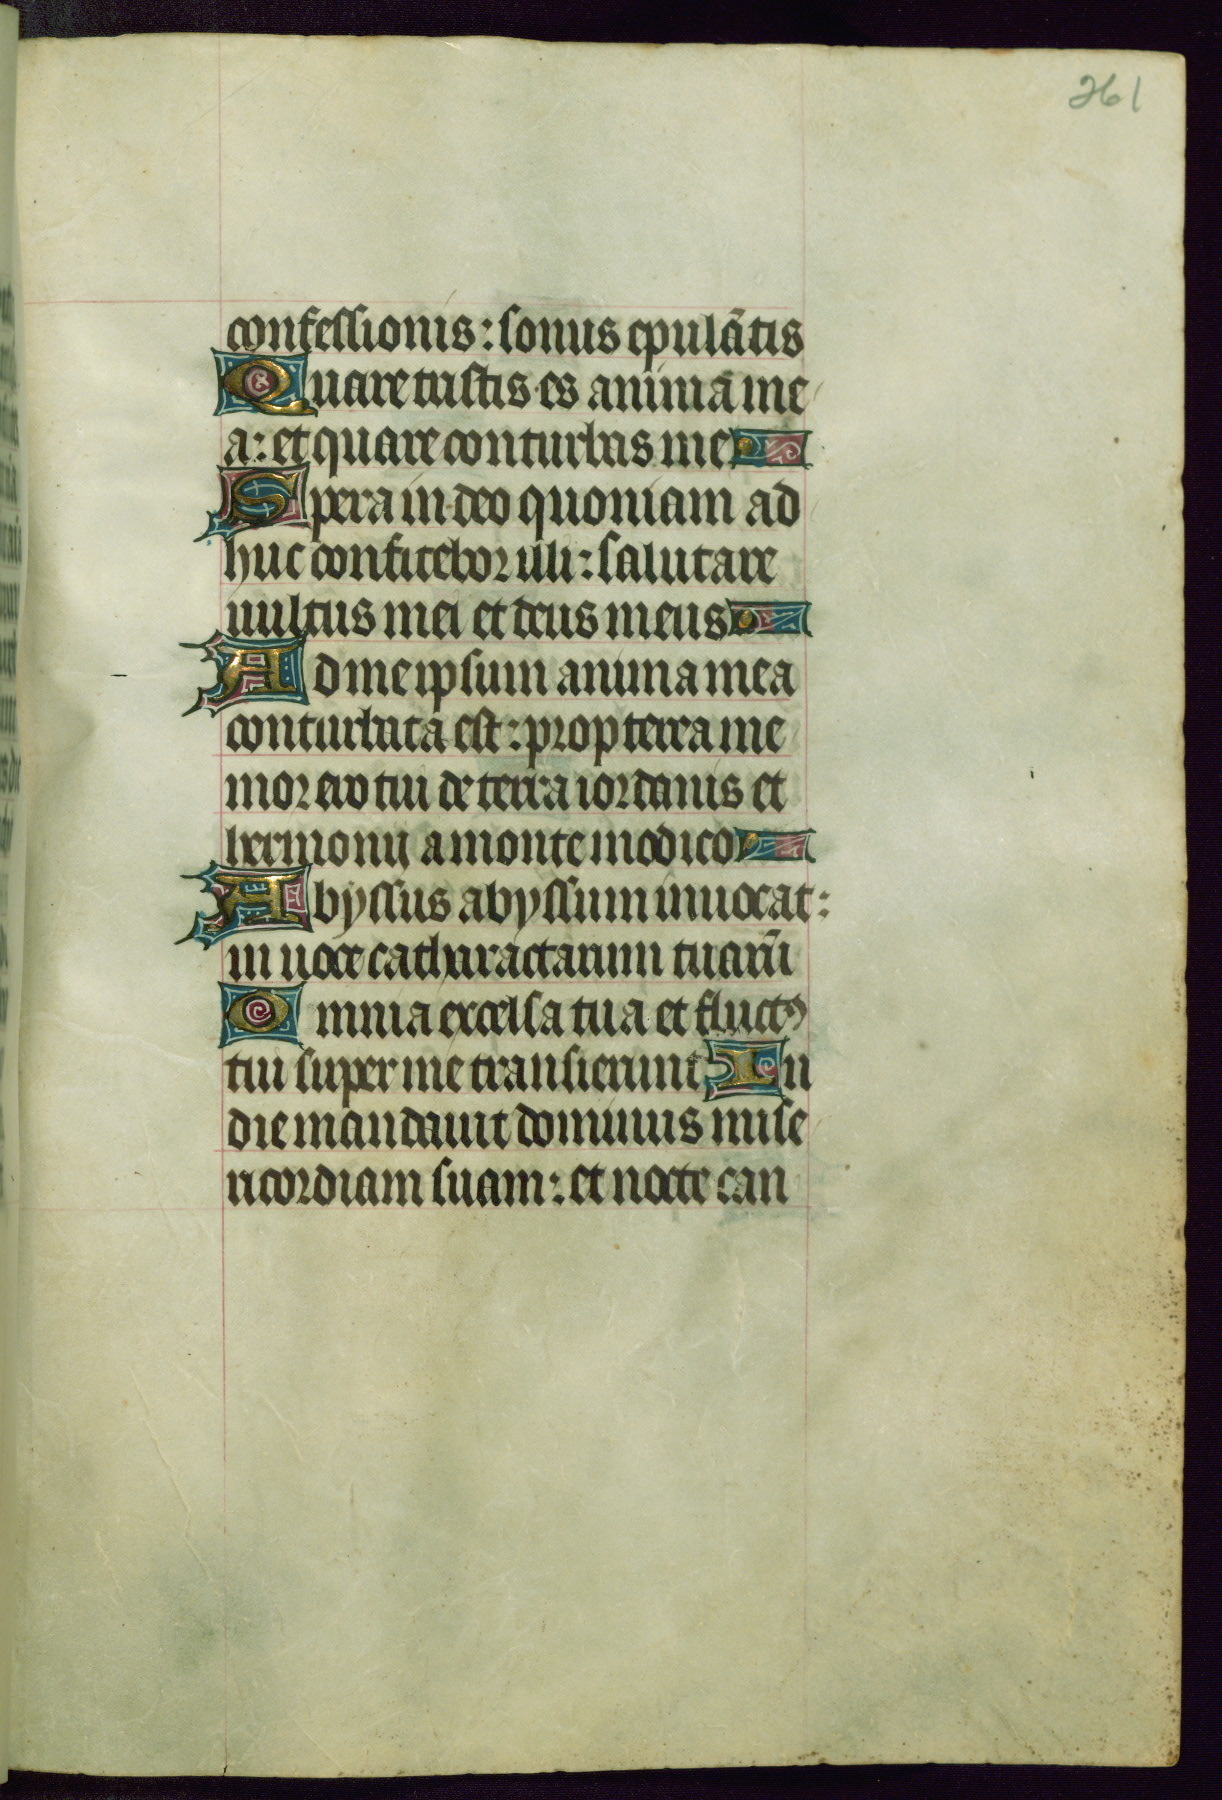 261
confessionis: sonus epulātis
Quare tristis es anima me
a: et quare conturbas me
Spera in deo quoniam ad
huc confitebor illi: salutare
uultus mei et deus meus
Ad me ipsum anima mea
conturbata est: propterea me
mor ero tui de terra iordanis et
hermonij a monte modico
Abyssus abyssum inuocat:
in uoce catharactarum tuarū
Omnia excelsa tua et fluctꝰ
tui super me transierunt In
die mandauit dominus mise
ricordiam suam: et nocte can